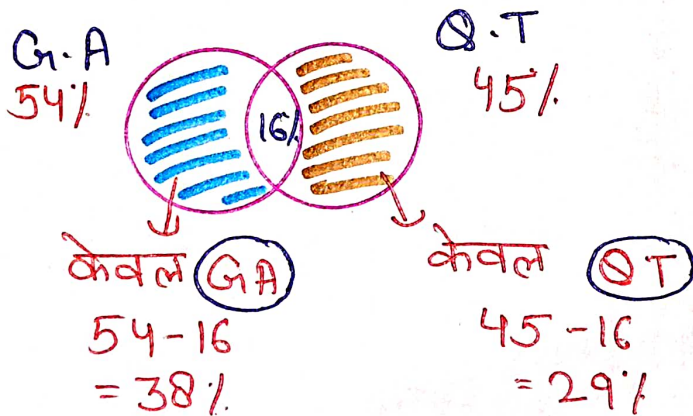 G.A
54%
Q.T
45%
16%
केवल GA
54-16
= 38%
केवल QT
45-16
= 29%